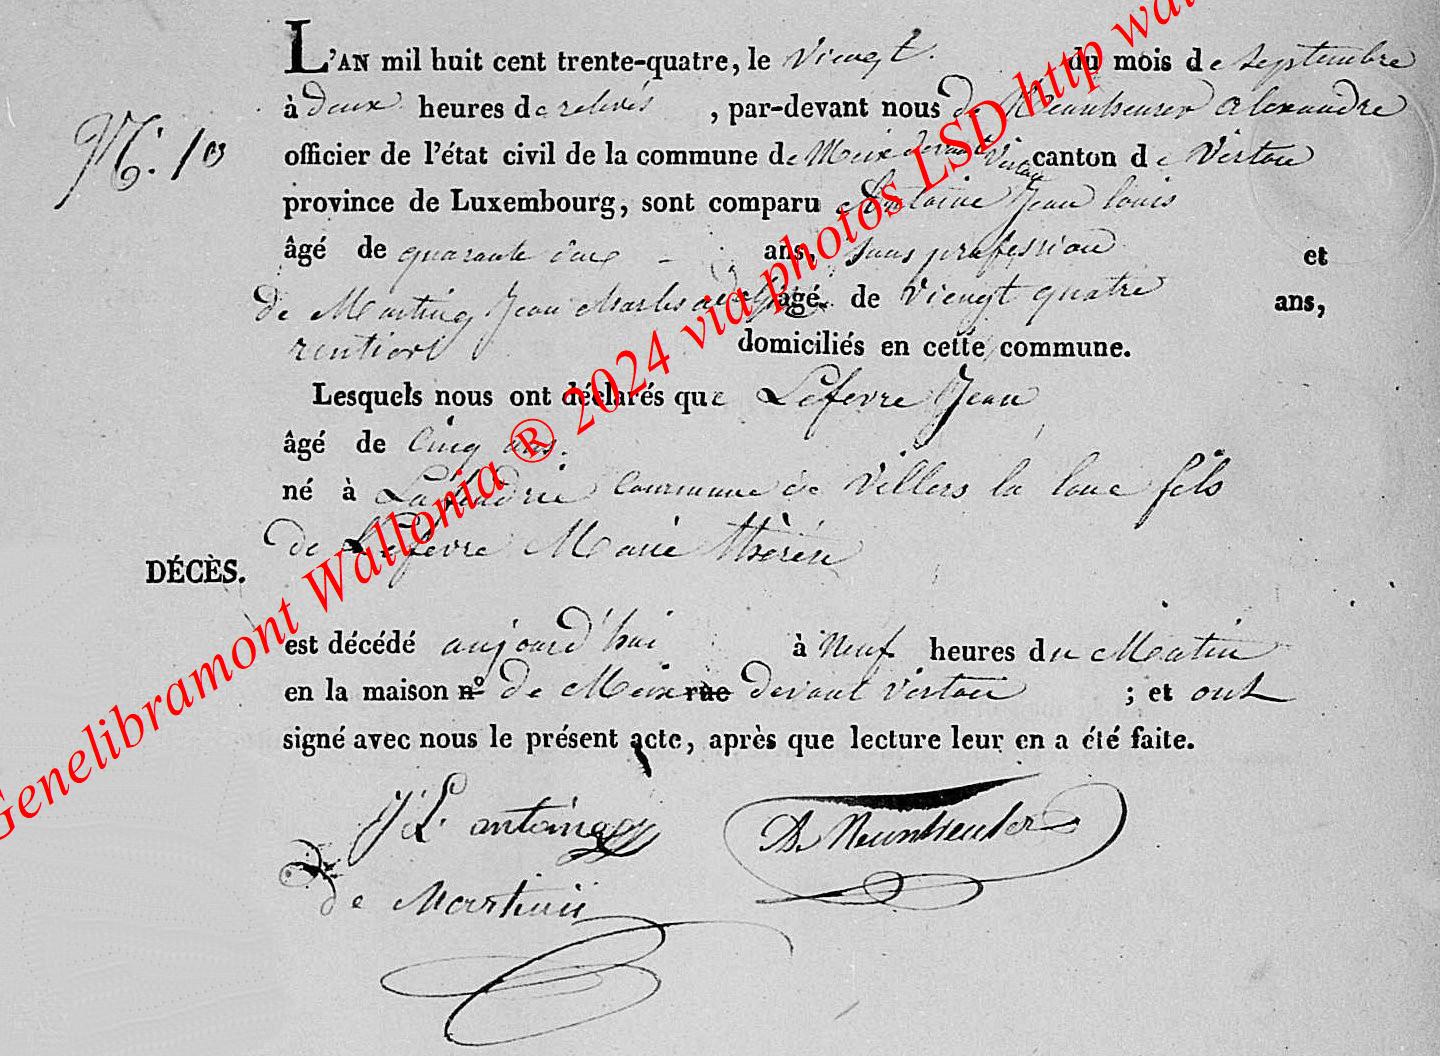 L'AN mil huit cent trente-quatre, le Viengt du mois de septembre
à deux heures de relevés, par-devant nous de Neunheuser Alexandre
N. 10
officier de l'état civil de la commune de Meix devant Virton canton de Virton
province de Luxembourg, sont comparu Antoine Jean louis
âgé de quarante ans, sans profession et
de Martiny Jean Charles âgé de viengt quatre ans,
rentier domiciliés en cette commune.
Lesquels nous ont déclarés que Lefevre Jean
âgé de Cinq ans.
né à commune de Villers la loue fils
de Lefevre Marie
DÉCÈS.
est décédé aujourd'hui à Neuf heures du Matin
en la maison n° de Meix rue devant Virton ; et ont
signé avec nous le présent acte, après que lecture leur en a été faite.
JL. antoine A. Neunheuser
de Martinii
Genelibramont Wallonia ® 2024 via photos LSD http wal